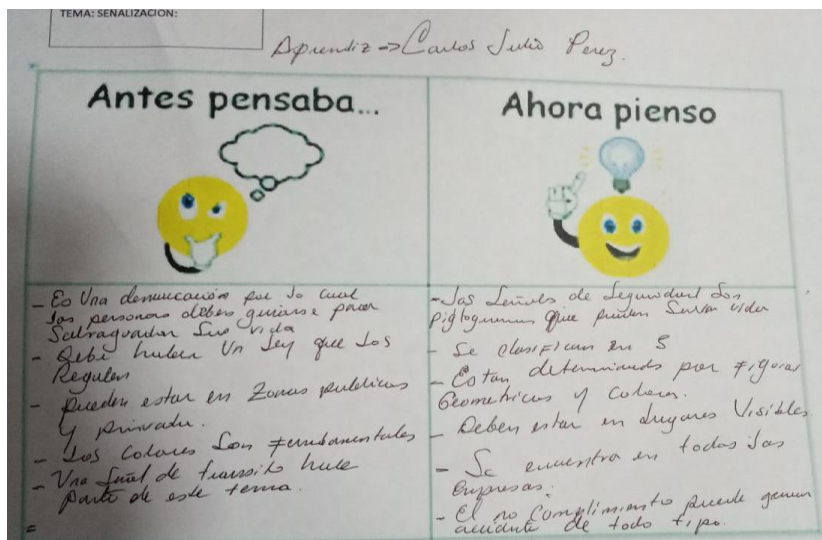 TEMA: SEÑALIZACION:
Aprendiz -> Carlos Julio Perez.
Antes pensaba...
- Es Una demarcación por lo cual
las personas deben guiarse para
Salvaguardar Sus vida
- Debe haber Un ley que los
Regulen
- pueden estar en Zonas publicas
y privada.
- Los Colores Son fundamentales
- Una Señal de transito hace
parte de este tema.
=
Ahora pienso
- Las Señales de Seguridad Son
que pueden Salvar vidas
- Se clasifican en 5
- Estan determinados por figuras
Geometricas y Colores.
- Deben estar en Lugares Visibles.
- Se encuentra en todas las
Empresas.
- El no Cumplimiento puede generar
accidente de todo tipo.